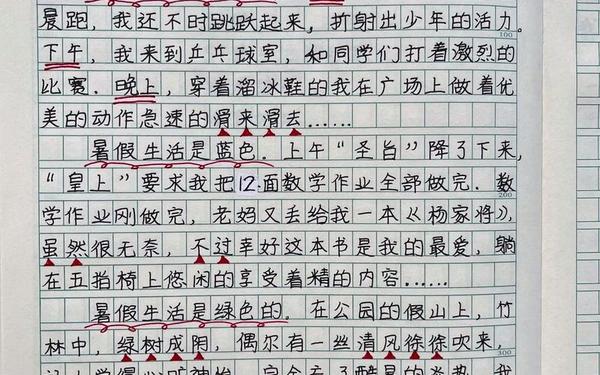 晨跑，我还不时跳跃起来，折射出少年的活力。
100
下午，我来到乒乓球室，和同学们打着激烈的
比赛。晚上，穿着溜冰鞋的我在广场上做着优
美的动作急速的滑来滑去……
暑假生活是蓝色．上午“圣旨”降了下来，
“皇上”要求我把12.面数学作业全部做完．数
200
学作业刚做完，老妈又丢给我一本《杨家将》，
虽然很无奈，不过幸好这本书是我的最爱，躺
在五指椅上悠闲的享受着精的内容……
暑假生活是绿色的．在公园的假山上，竹
林中，绿树成阴，偶尔有一丝清风徐徐吹来，
300